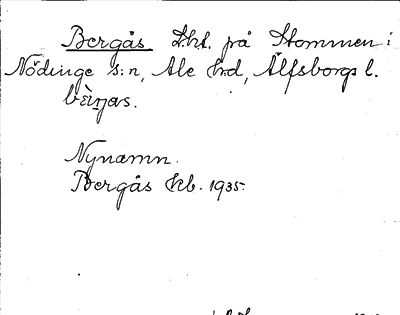 Bergås lht. på Stommen i
Nödinge s:n, Ale hd, Älfsborgs l.
bèŋas.
Nynamn.
Bergås kb. 1935.